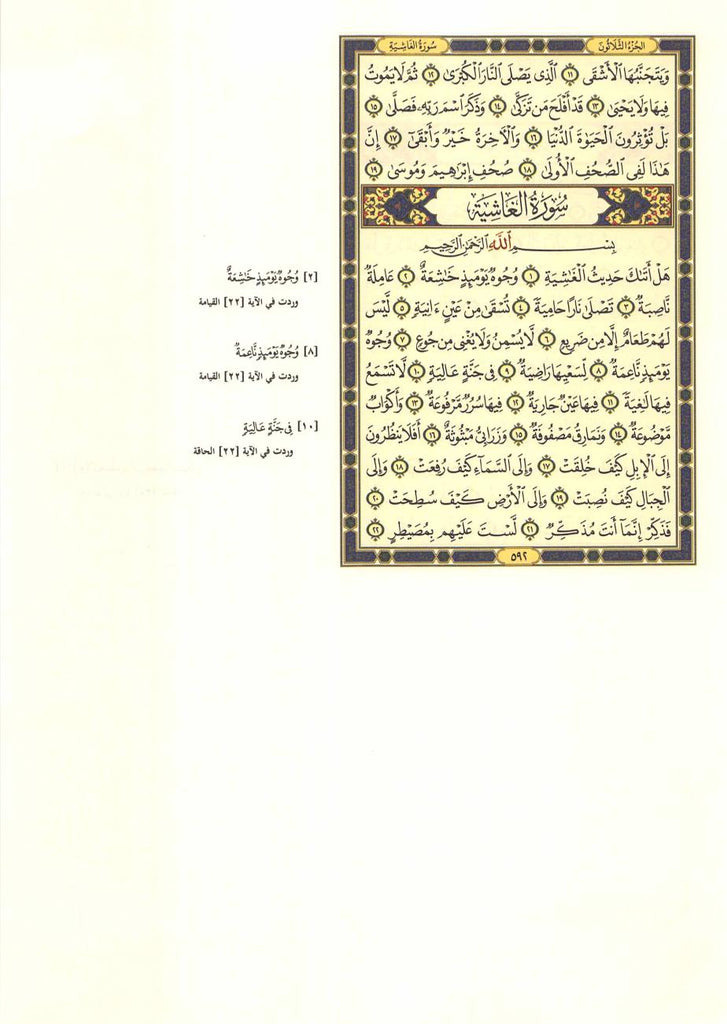 الجزء الثلاثون
سورة الغاشية
وَيَتَجَنَّبُهَا الْأَشْقَى ١١ الَّذِى يَصْلَى النَّارَ الْكُبْرَىٰ ١٢ ثُمَّ لَا يَمُوتُ
فِيهَا وَلَا يَحْيَىٰ ١٣ قَدْ أَفْلَحَ مَن تَزَكَّىٰ ١٤ وَذَكَرَ اسْمَ رَبِّهِۦ فَصَلَّىٰ ١٥
بَلْ تُؤْثِرُونَ الْحَيَوٰةَ الدُّنْيَا ١٦ وَالْآخِرَةُ خَيْرٌ وَأَبْقَىٰٓ ١٧ إِنَّ
هَٰذَا لَفِى الصُّحُفِ الْأُولَىٰ ١٨ صُحُفِ إِبْرَٰهِيمَ وَمُوسَىٰ ١٩
سُورَةُ الْغَاشِيَةِ
بِسْمِ اللَّهِ الرَّحْمَٰنِ الرَّحِيمِ
هَلْ أَتَىٰكَ حَدِيثُ الْغَٰشِيَةِ ١ وُجُوهٌ يَوْمَئِذٍ خَٰشِعَةٌ ٢ عَامِلَةٌ
نَّاصِبَةٌ ٣ تَصْلَىٰ نَارًا حَامِيَةً ٤ تُسْقَىٰ مِنْ عَيْنٍ ءَانِيَةٍ ٥ لَّيْسَ
لَهُمْ طَعَامٌ إِلَّا مِن ضَرِيعٍ ٦ لَّا يُسْمِنُ وَلَا يُغْنِى مِن جُوعٍ ٧ وُجُوهٌ
يَوْمَئِذٍ نَّاعِمَةٌ ٨ لِّسَعْيِهَا رَاضِيَةٌ ٩ فِى جَنَّةٍ عَالِيَةٍ ١٠ لَّا تَسْمَعُ
فِيهَا لَٰغِيَةً ١١ فِيهَا عَيْنٌ جَارِيَةٌ ١٢ فِيهَا سُرُرٌ مَّرْفُوعَةٌ ١٣ وَأَكْوَابٌ
مَّوْضُوعَةٌ ١٤ وَنَمَارِقُ مَصْفُوفَةٌ ١٥ وَزَرَابِىُّ مَبْثُوثَةٌ ١٦ أَفَلَا يَنظُرُونَ
إِلَى الْإِبِلِ كَيْفَ خُلِقَتْ ١٧ وَإِلَى السَّمَآءِ كَيْفَ رُفِعَتْ ١٨ وَإِلَى
الْجِبَالِ كَيْفَ نُصِبَتْ ١٩ وَإِلَى الْأَرْضِ كَيْفَ سُطِحَتْ ٢٠
فَذَكِّرْ إِنَّمَآ أَنتَ مُذَكِّرٌ ٢١ لَّسْتَ عَلَيْهِم بِمُصَيْطِرٍ ٢٢
٥٩٢
[٢] وُجُوهٌ يَوْمَئِذٍ خَٰشِعَةٌ
وردت في الآية [٢٢] القيامة
[٨] وُجُوهٌ يَوْمَئِذٍ نَّاعِمَةٌ
وردت في الآية [٢٢] القيامة
[١٠] فِى جَنَّةٍ عَالِيَةٍ
وردت في الآية [٢٢] الحاقة